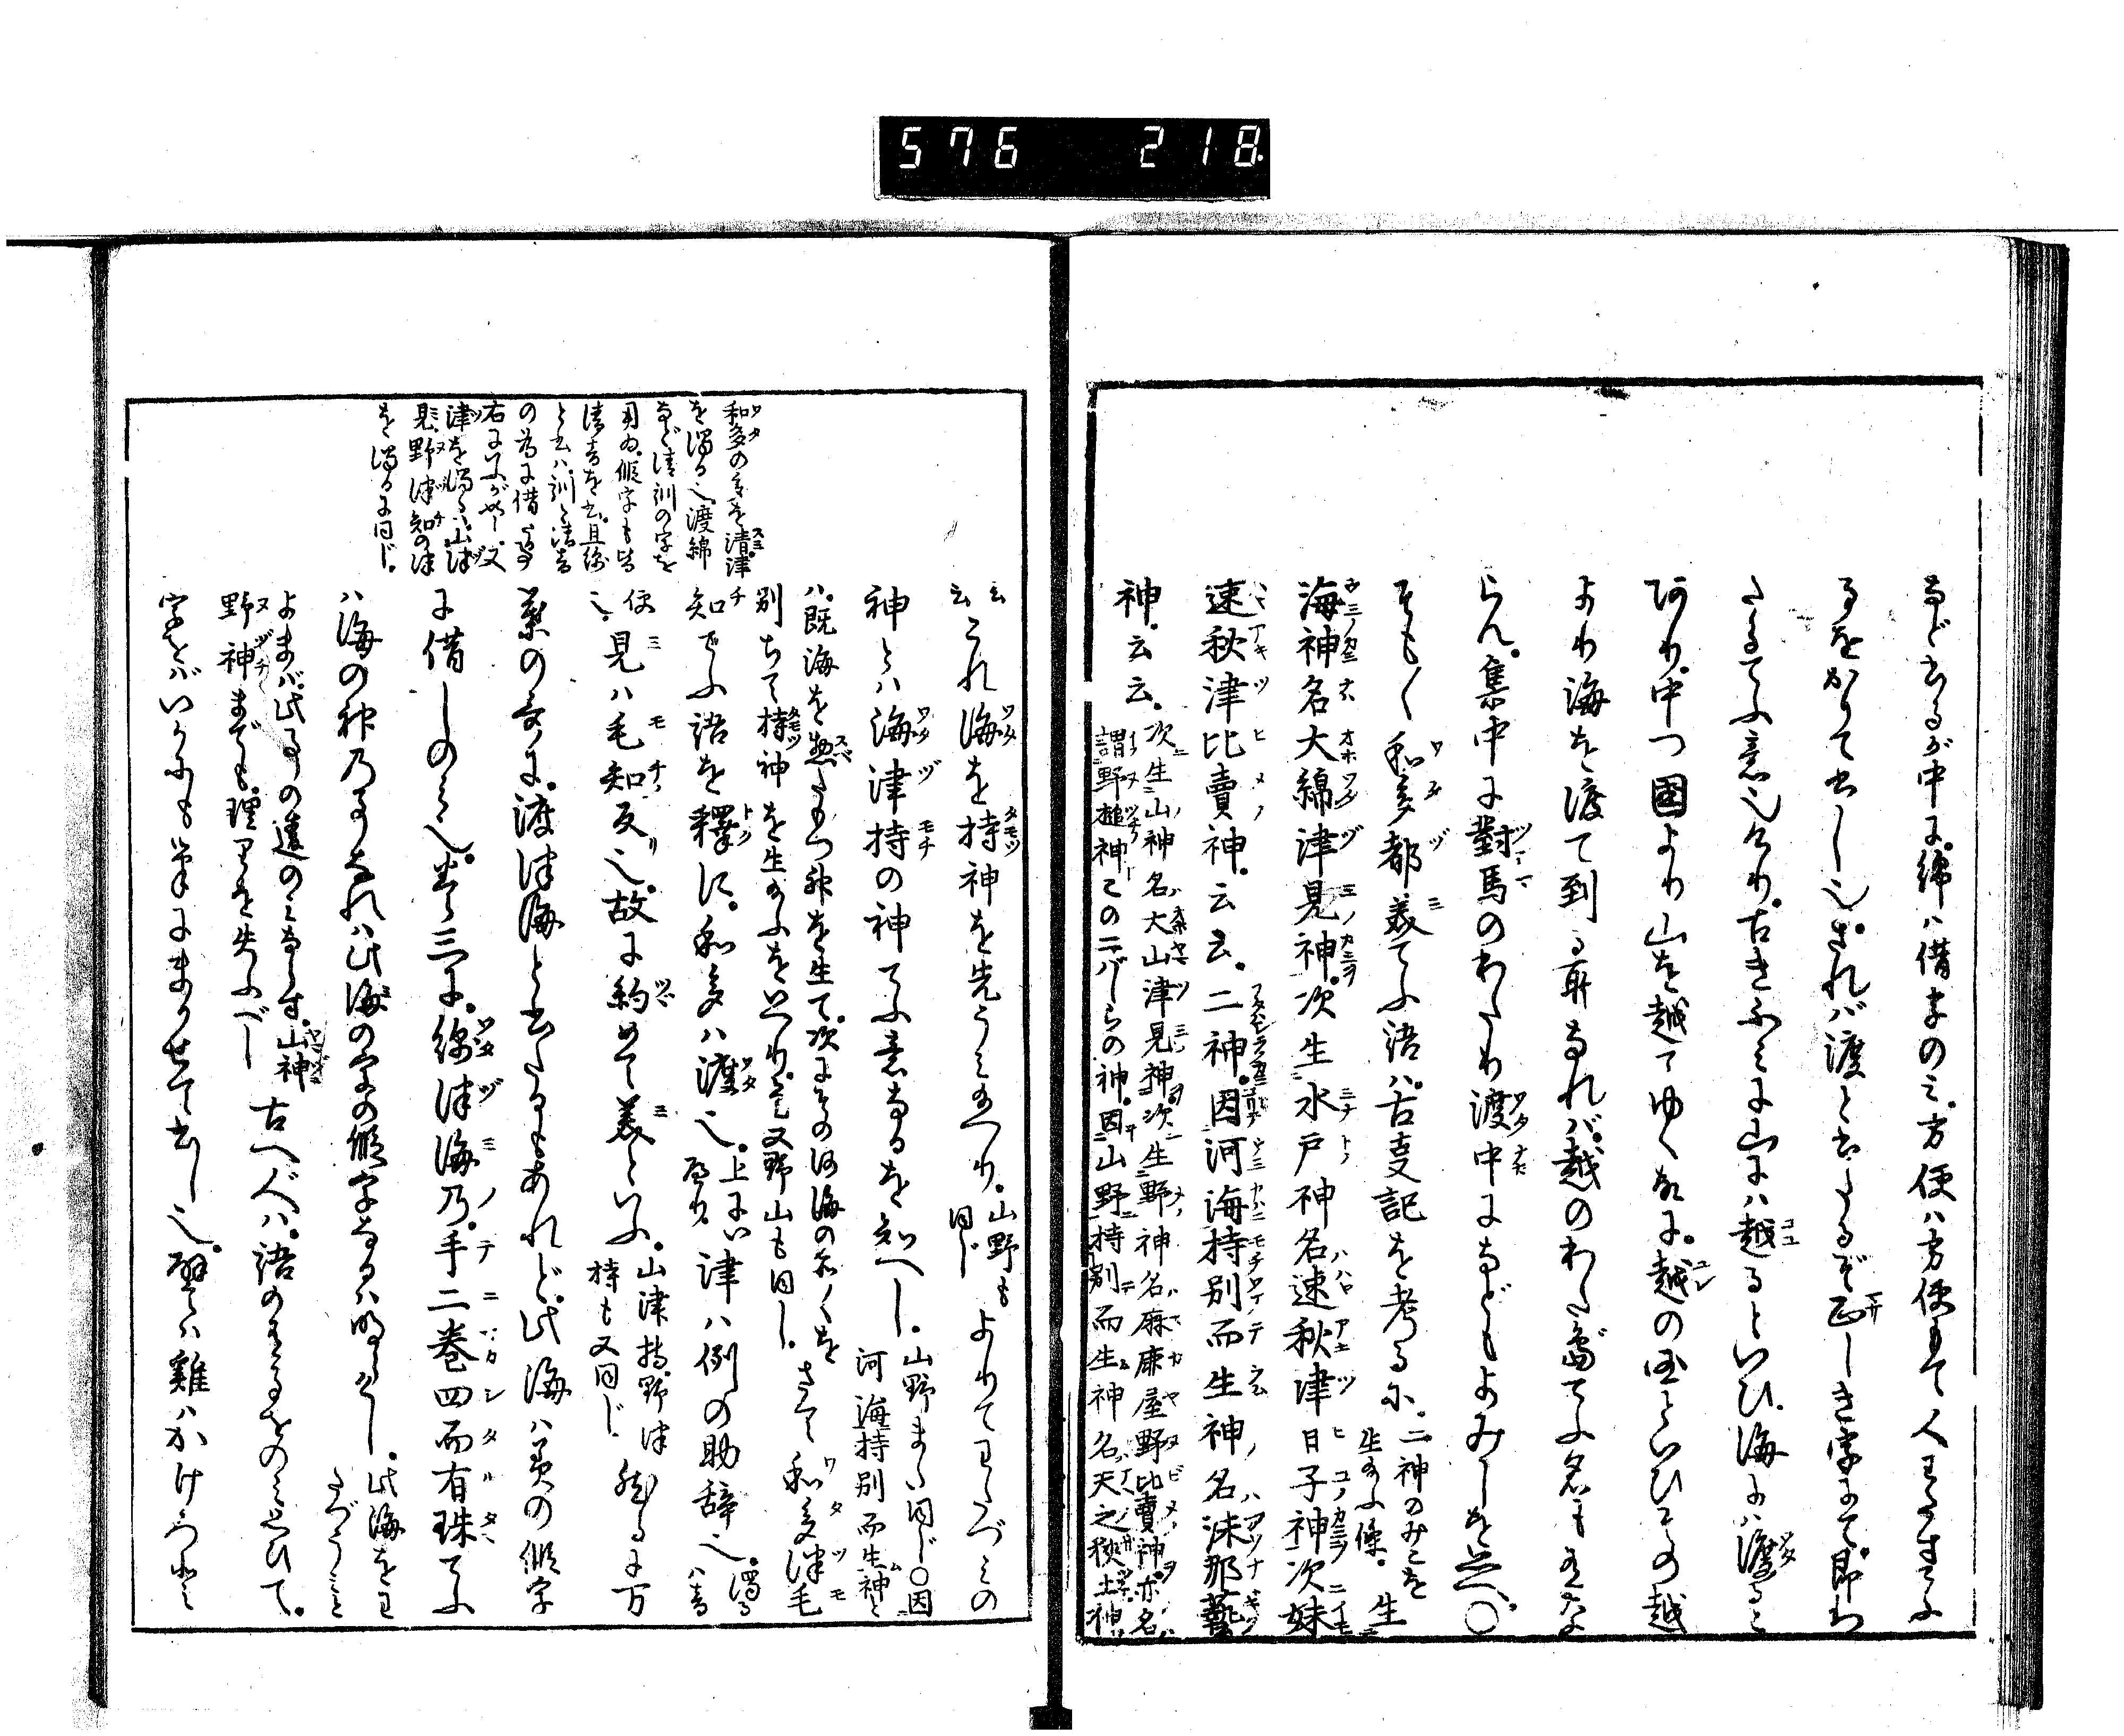 576 218
などあるが中に綿ハ借字のミ方便ハ方便もて人わたすてふ
るをかりて書しなりされバ渡と書たるぞ正しき字にて即わ
たるてふ意なりけり古きふミに山にハ越るといひ海にハ渡ると
あり中つ國より山を越てゆく故に越の国といひその越
より海を渡て到る所なれバ越のわた島てふ名もあるな
らん集中に對馬のわたり渡中になどもよみしを思へ〇
そも〳〵和多都美てふ語ハ古事記を考るに二神のみこを生給ふ條生
海神名大綿津見神次生水戸神名速秋津日子神次妹
速秋津比賣神云云二神因河海持別而生神名沫那藝
神云云次生山神名大山津見神次生野神名麻鹿屋野比賣神亦名
謂野槌神この二バしらの神因山野持別而生神名天之狹土神
云云これ海を持神を先うミ給へり山野も同じよりてわたづミの
神とハ海津持の神てふ意なるを知べし山野また同じ〇因河海持別而生神と
ハ既海を惣たもつ神を生て次にその河海の
別ちて持神を生給ふをいへり又野山も同しさて和多津毛
知てふ語を釋に和多ハ渡也上にいへり津ハ例の助辞也濁るハ音便
也見ハ毛知反也故に約めて美といふ山津持野津持も又同じ然るに万
葉の哥に渡津海と書たるもあれど此海ハ美の假字
に借しのミ也巻三に綿津海乃手二巻四而有珠てふ
ハ海の神乃事なれハ此海の字の假字なるハ明らけし此海をわたづうミと
よまバ此事の違のミならす山神
野神までも理りを失ふべし古へ人ハ語のまことをのミいひて
字をバいかにも筆にまかせて書し也譬ハ雞ハかけろと
和多の多を清津
を濁る也渡綿
など清訓の字を
用ゐ假字も皆
清音を書且綿
と書ハ訓も清音
の為に借たる事
右にいふが如し又
津を濁るハ山津
見野津知の津
を濁るに同じ